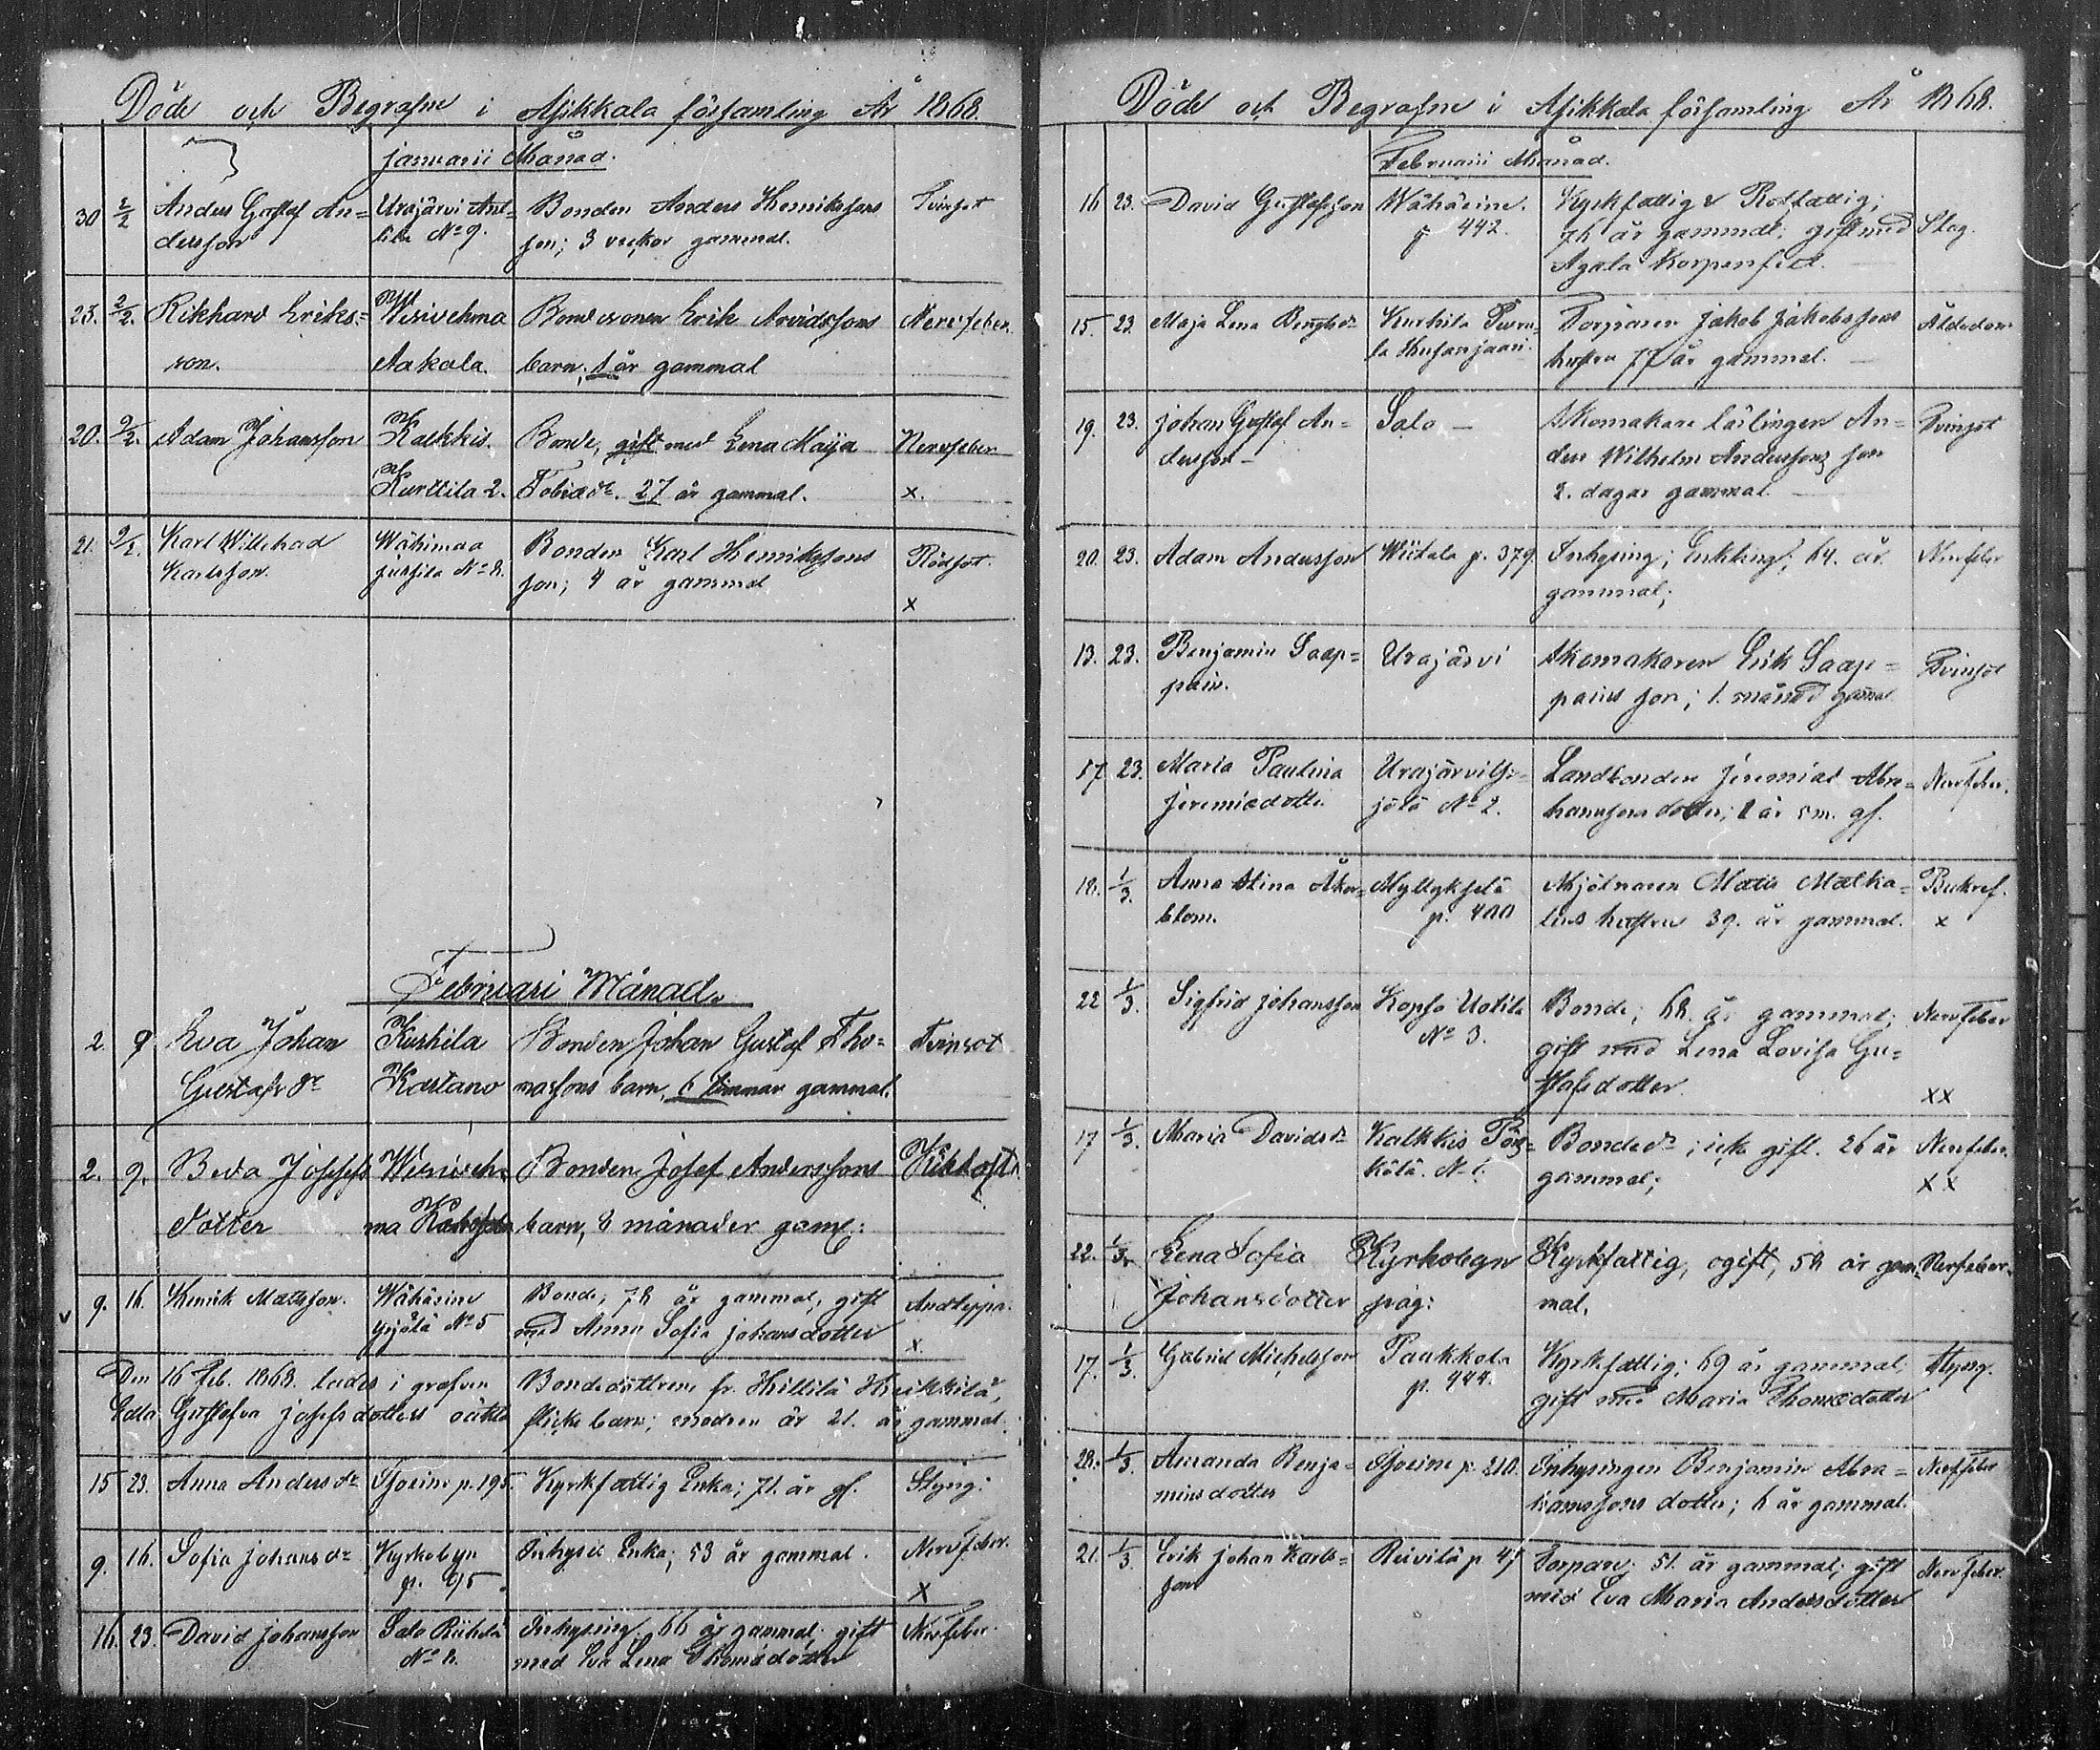 Döde och Begrafne i Asikkala församling År 1868.
Januarii Månad.
30 2/2 Anders Gustaf An= Urajärvi Ant= Bonden Anders Henrikssons Tvinsot
dersson tila No 9. son; 3 veckor gammal.
23. 2/2. Rikhard Eriks= Wesivehma Bondesonen Erik Arvidssons Nervfeber
son. Aakala. barn, 1 år gammal
20. 9/2. Adam Johansson Kalkkis. Bonde, gift med Lena Maija Nervfeber
Kurttila 2. Tobiadr. 27 år gammal. x.
21. 9/2. Karl Willehad Wähimaa Bonden Karl Henrikssons Rödsot.
Karlsson. Jussila No 8. son; 4 år gammal x
Februari Månad.
2. 9 Eva Johan Kurhila Bonden Johan Gustaf Tho= Tvinsot
Gustafsdr Kastano massons barn, 6 timmar gammal.
2. 9. Beda Josefs Wesiveh= Bonden Josef Anderssons Kikhosta
dotter ma barn, 8 månader gaml:
v 9. 16. Henrik Mattsson. Wähäsine Bonde; 78 år gammal, gift Andtäppa.
Yrjölä No 5 med Anna Sofia Johansdotter x.
Den 16 Feb. 1868. lades i grafven Bondedottrens fr. Hillilä Heikkilä,
Edla Gustafva Josefsdotters oäkta flickebarn; modren är 21. år gammal.
15 23. Anna Andersdr p. 195. Kyrkfattig Enka; 71. år gl. Styng:
9. 16. Sofia Johansdr Kyrkobyn Inhyses Enka; 53 år gammal. Nervfeber.
p. 95. X
16. 23. David Johansson Salo Riihelä Inhysing. 66 år gammal; gift Nervfeber.
No 8. med Eva Lena Thomasdotter
Döde och Begrafne i Asikkala församling År 1868.
Februarii Månad.
16 23. David Gustafsson Wähäsine. Kyrkfattig & Rotfattig;
p 442. 76 år gammal; gift med Slag.
Agata Korpenfelt.
15. 23. Maja Lena Bengtsdr Kurhila Torparen Jakob Jakobssons Ålderdom
hustru 77 år gammal.
19. 23. Johan Gustaf An= Salo – Skomakare lärlingen An= Tvinsot
dersson – ders Wilhelm Anderssons son
2. dagar gammal.
20. 23. Adam Andersson Wiitala p. 379. Inhysing; Enkling; 64. år Nervfeber
gammal;
13. 23. Benjamin Saap= Urajärvi Skomakaren Erik Saap= Tvinsot
pain. pains son; 1. månad gammal
17 23. Maria Paulina Urajärvi Landbonden Jeremias Abra= Nervfeber.
Jeremiedotter No 2. hamssons dotter; 1 år 5 m. gl.
18. 1/3. Anna Stina Åker= Myllykselä Mjölnaren Matts Matka= Bukref.
blom. p. 400 lins hustru 39. år gammal. x
22 1/3. Sigfrid Johansson Kopsa Uotila Bonde; 68. år gammal; Nervfeber
No 3. gift med Lena Lovisa Gu=
stafsdotter. xx
17 1/3. Maria Davidsdr Kalkkis Bondedr; icke gift. 26 år Nervfeber.
No 1. gammal; xx
22. 1/3. Lena Sofia Kyrkobyn Kyrkfattig, ogift, 58 år gam= Nervfeber.
Johansdotter pag: mal.
17. 1/3. Gabriel Michelsson Paakkola Kyrkfattig; 69 år gammal; Styng.
p. 444. gift med Maria Thomædotter
28. 1/3. Amanda Benja= p. 210. Inhysingen Benjamin Abra= Nervfeber
minsdotter hamssons dotter; 6 år gammal.
21. 1/3. Erik Johan Karls= Reivilä p 47 Torpare; 51. år gammal; gift Nervfeber.
son med Eva Maria Andersdotter